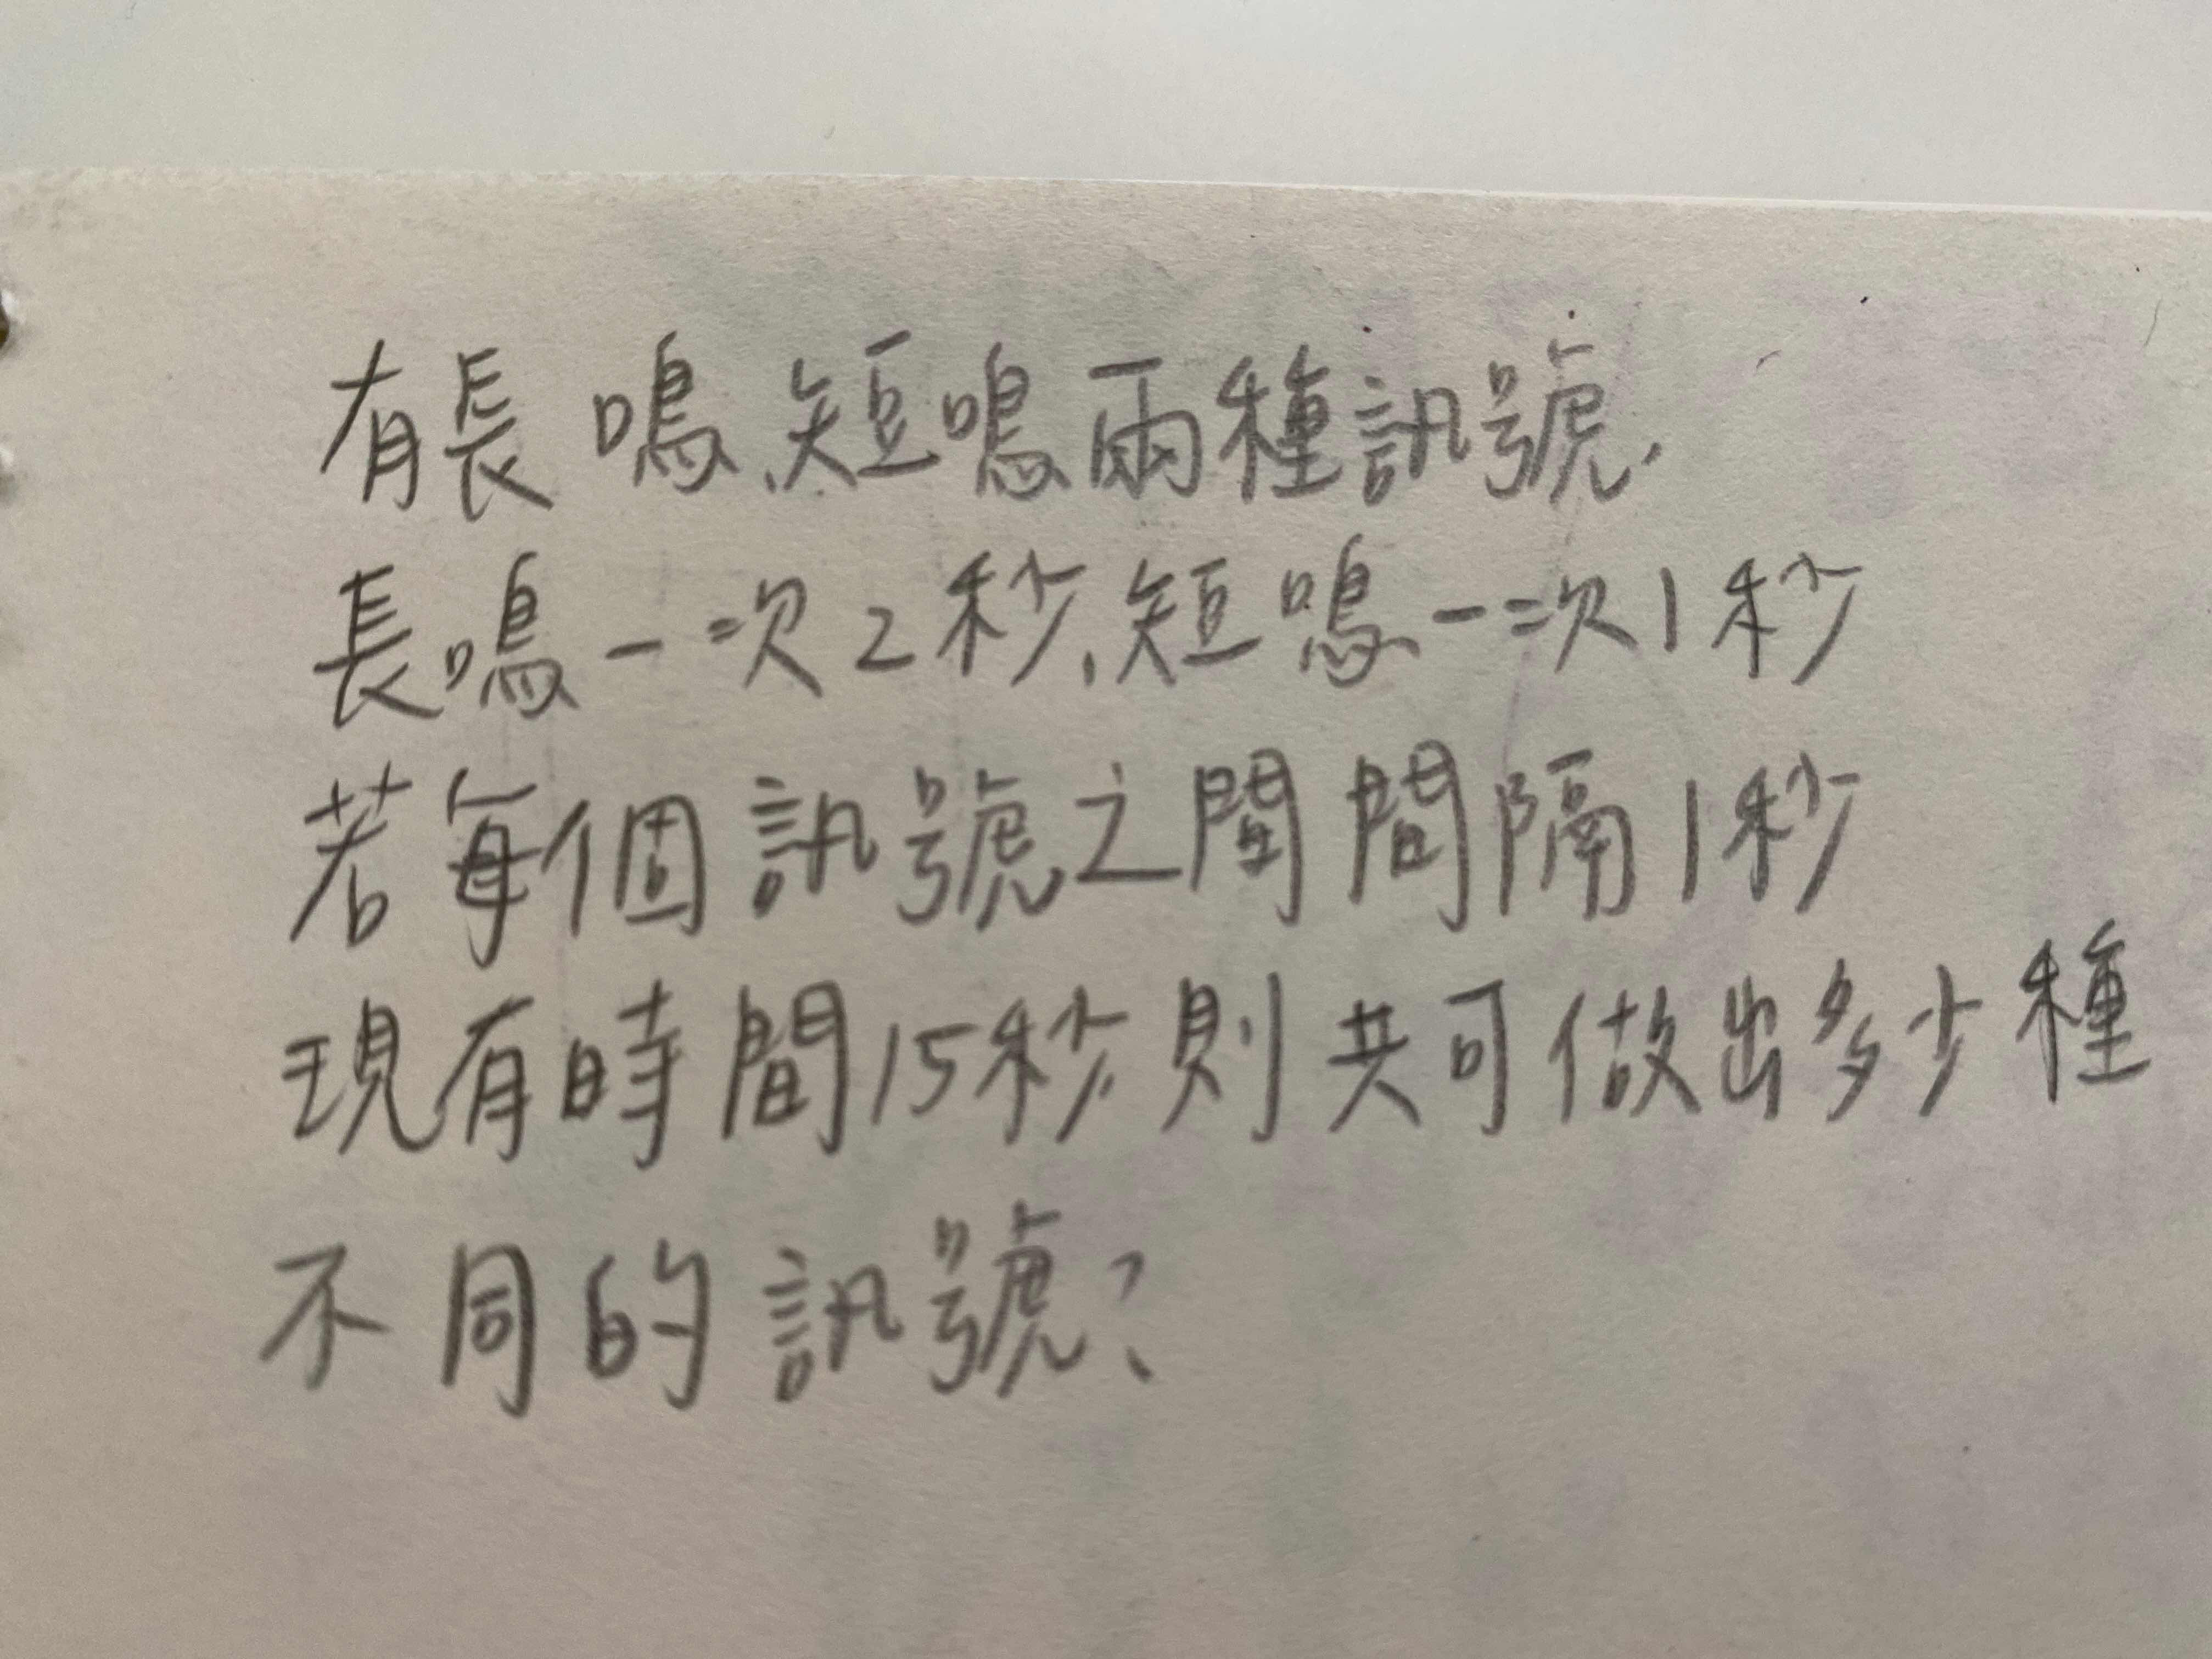 有長鳴、短鳴兩種訊號.
長鳴一次2秒、短鳴一次1秒
若每個訊號之間間隔1秒
現有時間15秒則共可做出多少種
不同的訊號?